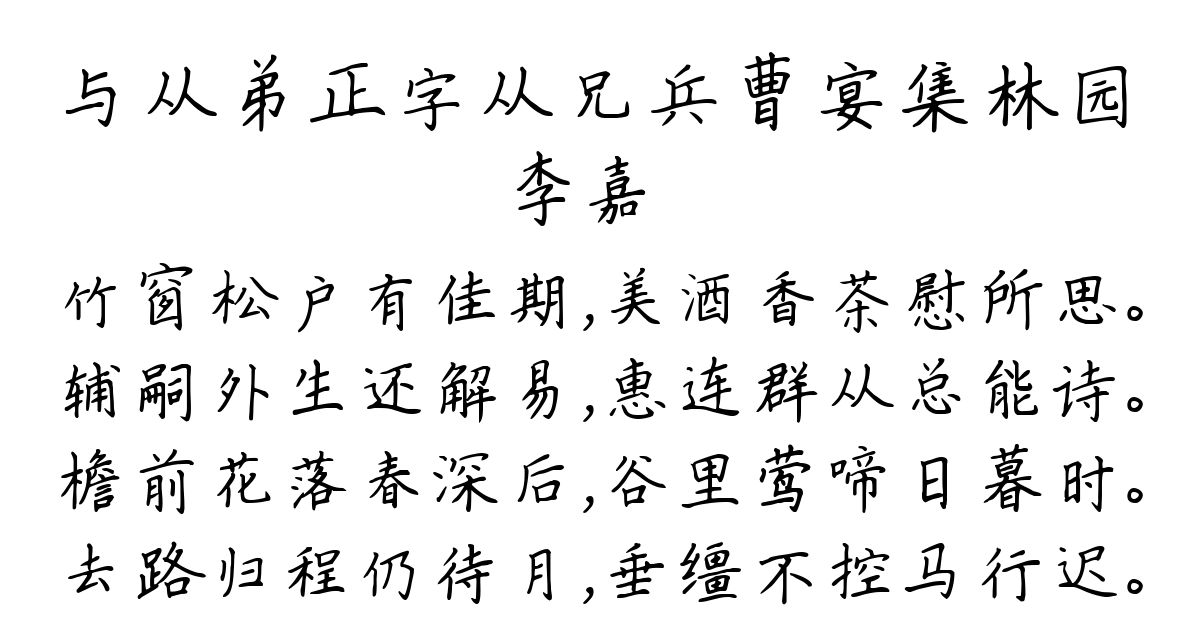 与从弟正字从兄兵曹宴集林园
李嘉
竹窗松户有佳期,美酒香茶慰所思。
辅嗣外生还解易,惠连群从总能诗。
檐前花落春深后,谷里莺啼日暮时。
去路归程仍待月,垂缰不控马行迟。